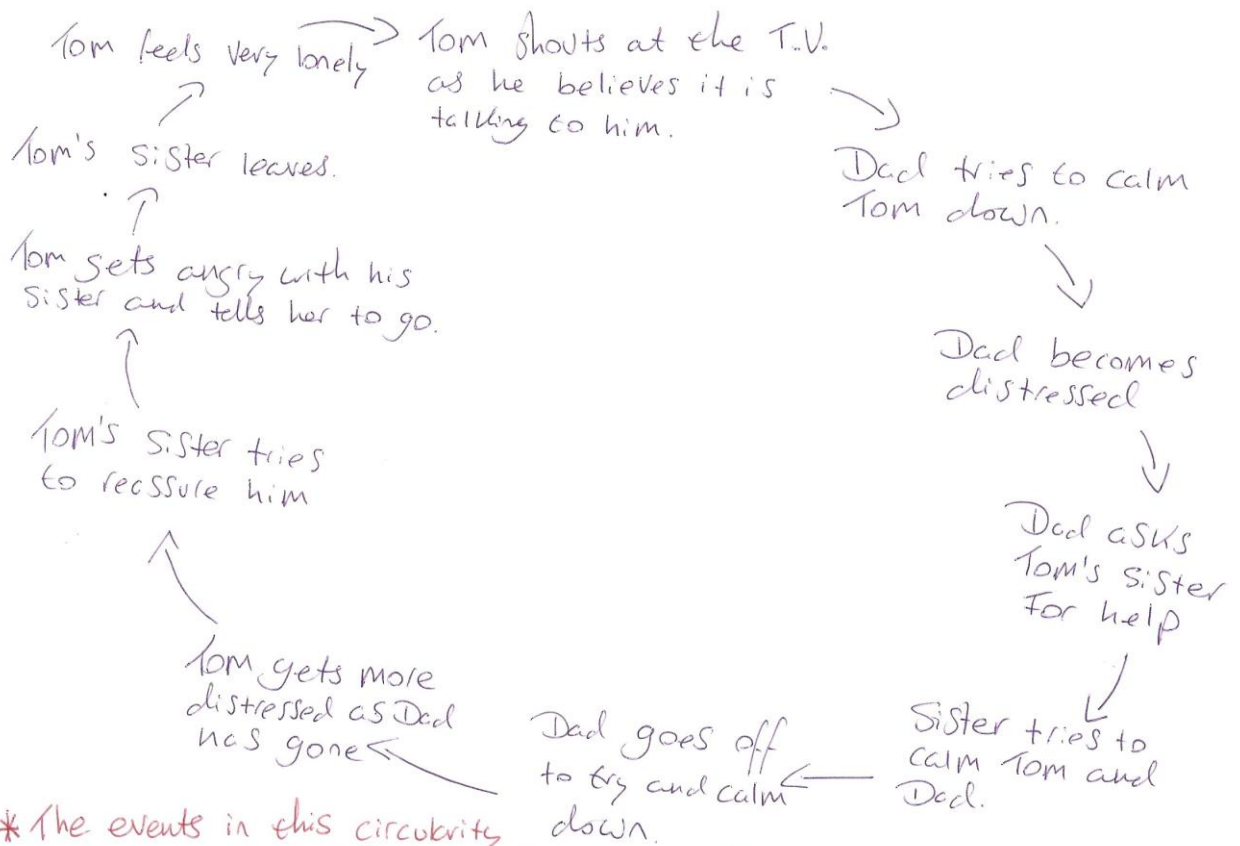 Tom feels very lonely
Tom shouts at the T.V.
as he believes it is
talking to him.
Dad tries to calm
Tom down.
Dad becomes
distressed
Dad asks
Tom's Sister
For help
Sister tries to
calm Tom and
Dad.
Dad goes off
to try and calm
down.
Tom gets more
distressed as Dad
has gone
Tom's Sister tries
to reassure him
Tom gets angry with his
Sister and tells her to go.
Tom's Sister leaves.
* The events in this circularity